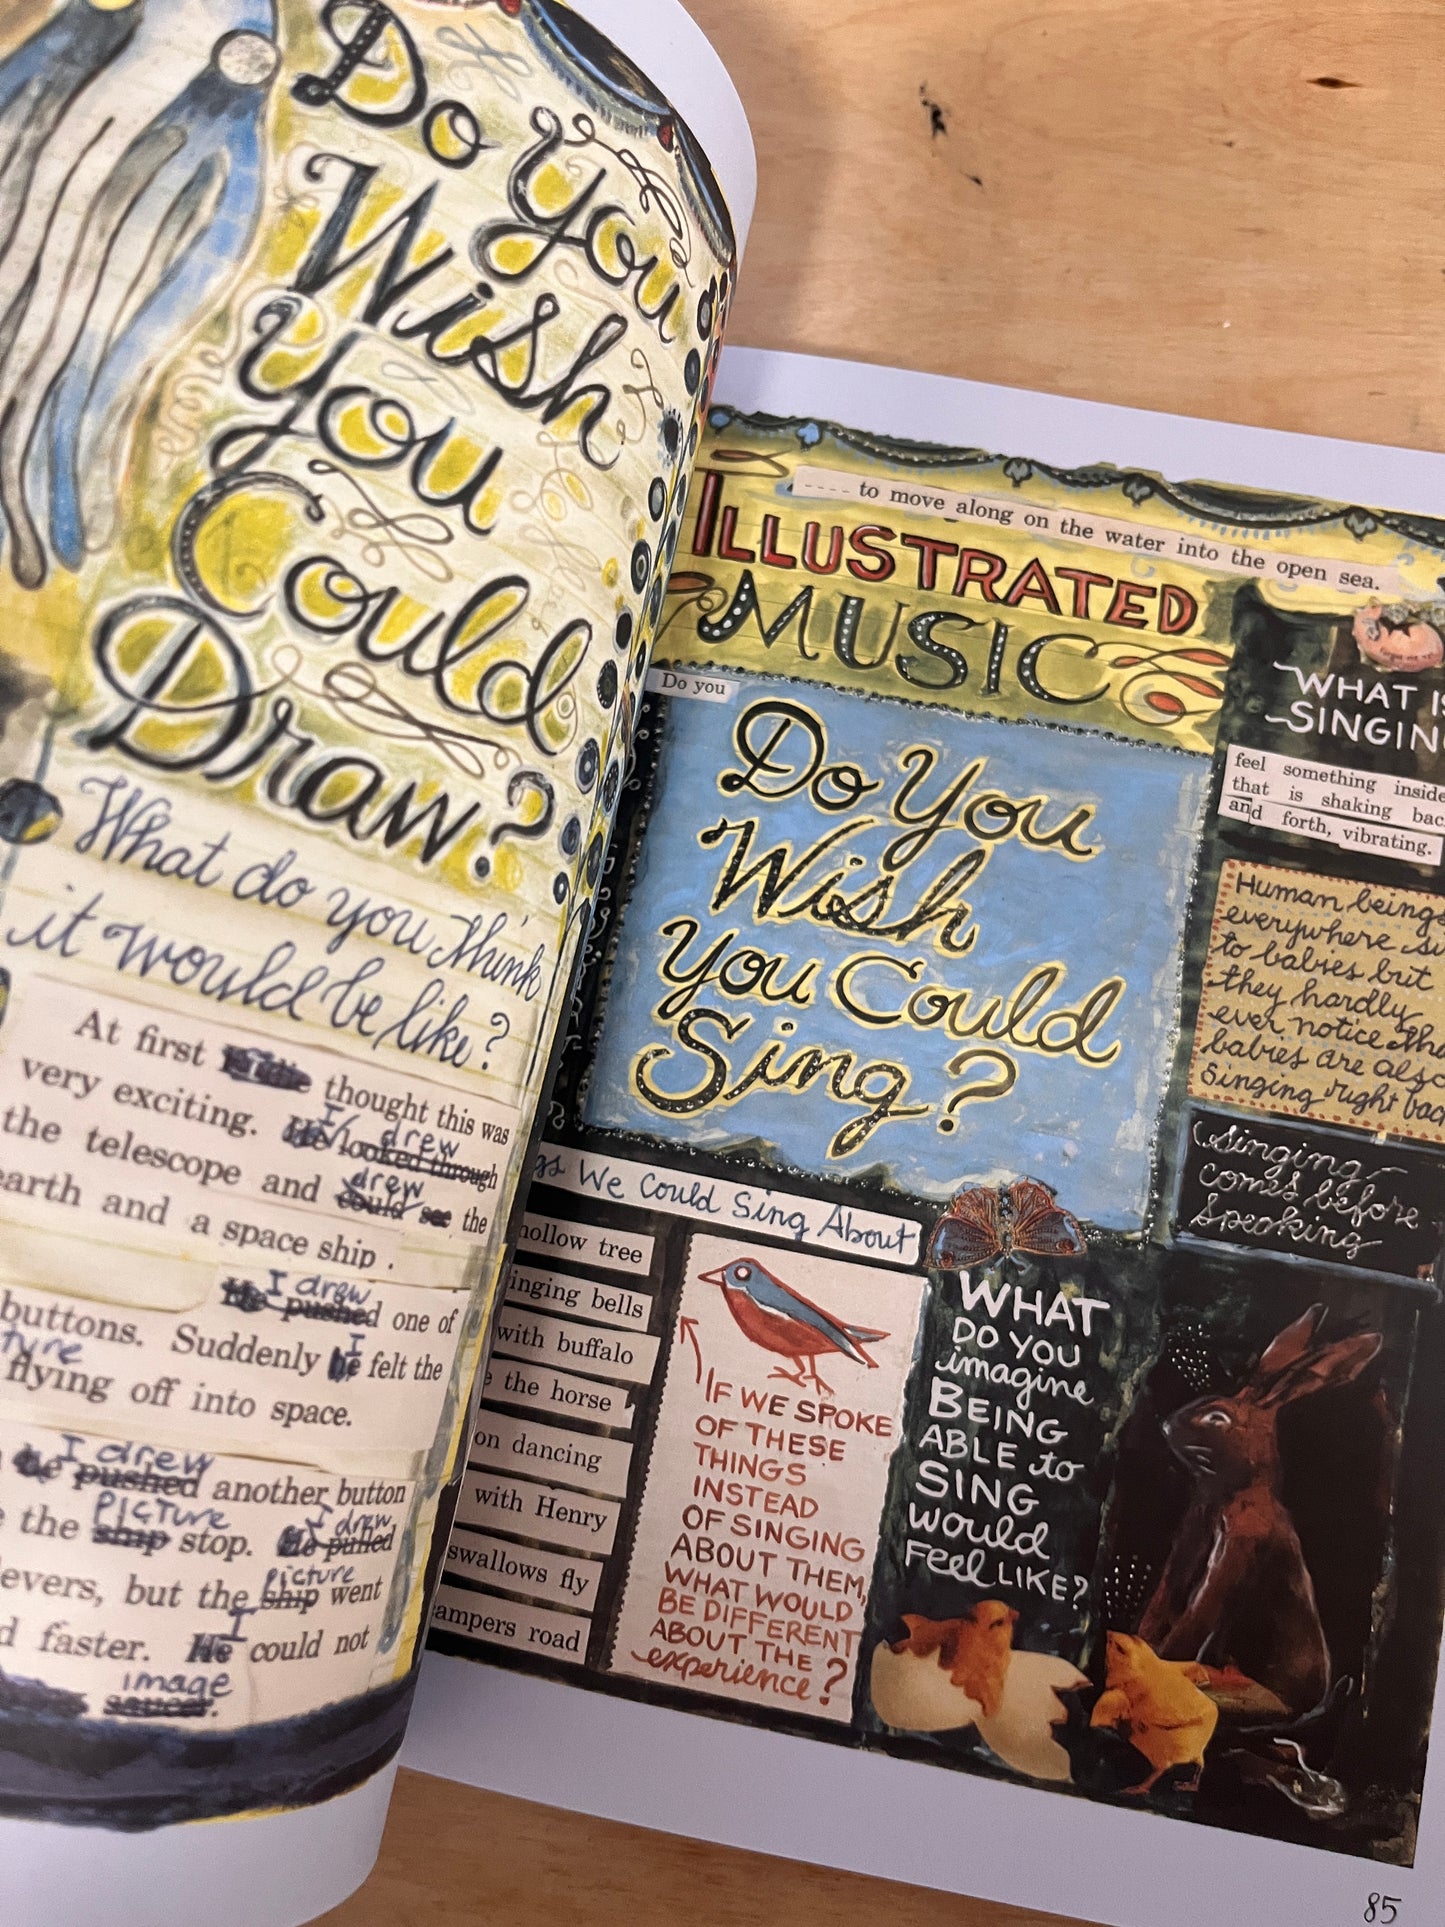 Do You
Wish
You
Could
Draw?
What do you think
it would be like?
At first thought this was
very exciting. He looked through
I drew
the telescope and could see the
drew
earth and a space ship.
I drew
He pushed one of
buttons. Suddenly he felt the
I
ture
flying off into space.
I drew
he pushed another button
PICTURE
I drew
the ship stop. He pulled
picture
levers, but the ship went
I
d faster. He could not
image
saucer.
---- to move along on the water into the open sea.
ILLUSTRATED
MUSIC
Do you
Do You
Wish
You Could
Sing?
gs We Could Sing About
hollow tree
inging bells
with buffalo
e the horse
on dancing
with Henry
swallows fly
ampers road
IF WE SPOKE
OF THESE
THINGS
INSTEAD
OF SINGING
ABOUT THEM,
WHAT WOULD
BE DIFFERENT
ABOUT THE
experience?
WHAT
DO YOU
imagine
BEING
ABLE to
SING
would
FEEL LIKE?
WHAT IS
SINGIN
feel something inside
that is shaking bac
and forth, vibrating.
Human beings
everywhere
to babies but
they hardly
ever notice tha
babies are also
singing right bac
Singing
comes before
Speaking
85